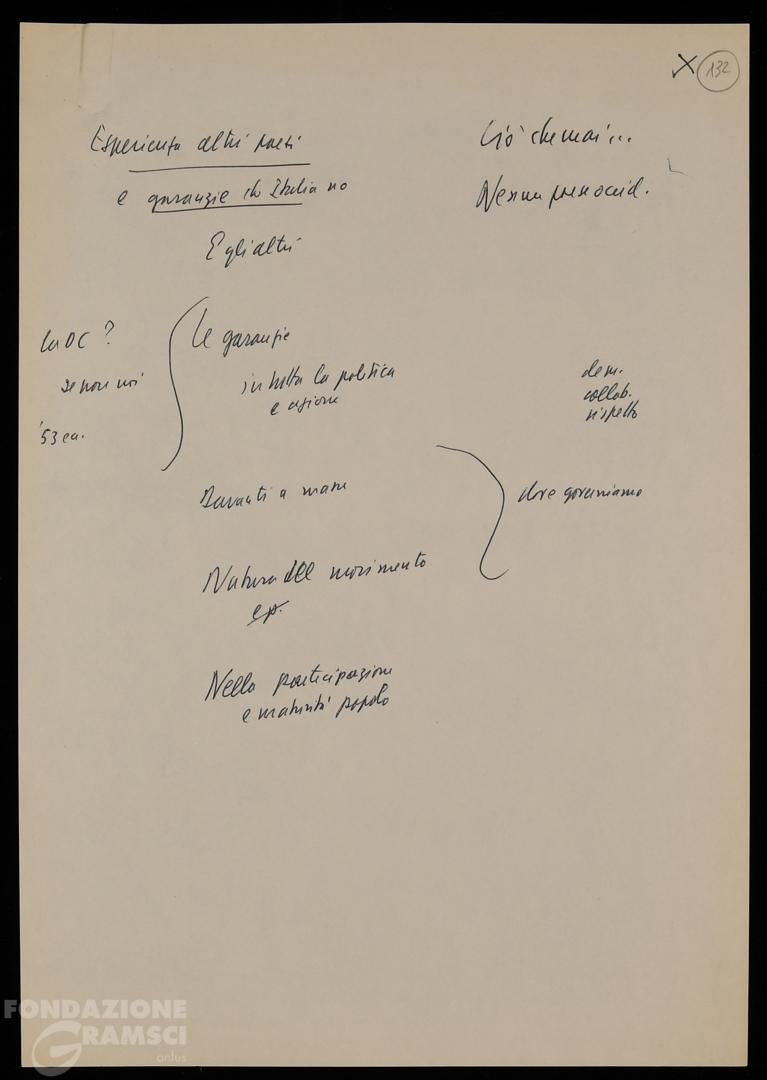 X 132
Esperienza altri paesi
e garanzie che Italia no
E gli altri
Ciò che mai...
Nessun paese occid.
La DC?
se non noi
'53 ecc.
Le garanzie
in tutta la politica
e azione
dem.
collab.
rispetto
Davanti a masse
Natura del movimento
Nella partecipazione
e maturità popolo
dove governiamo
FONDAZIONE
GRAMSCI
onlus